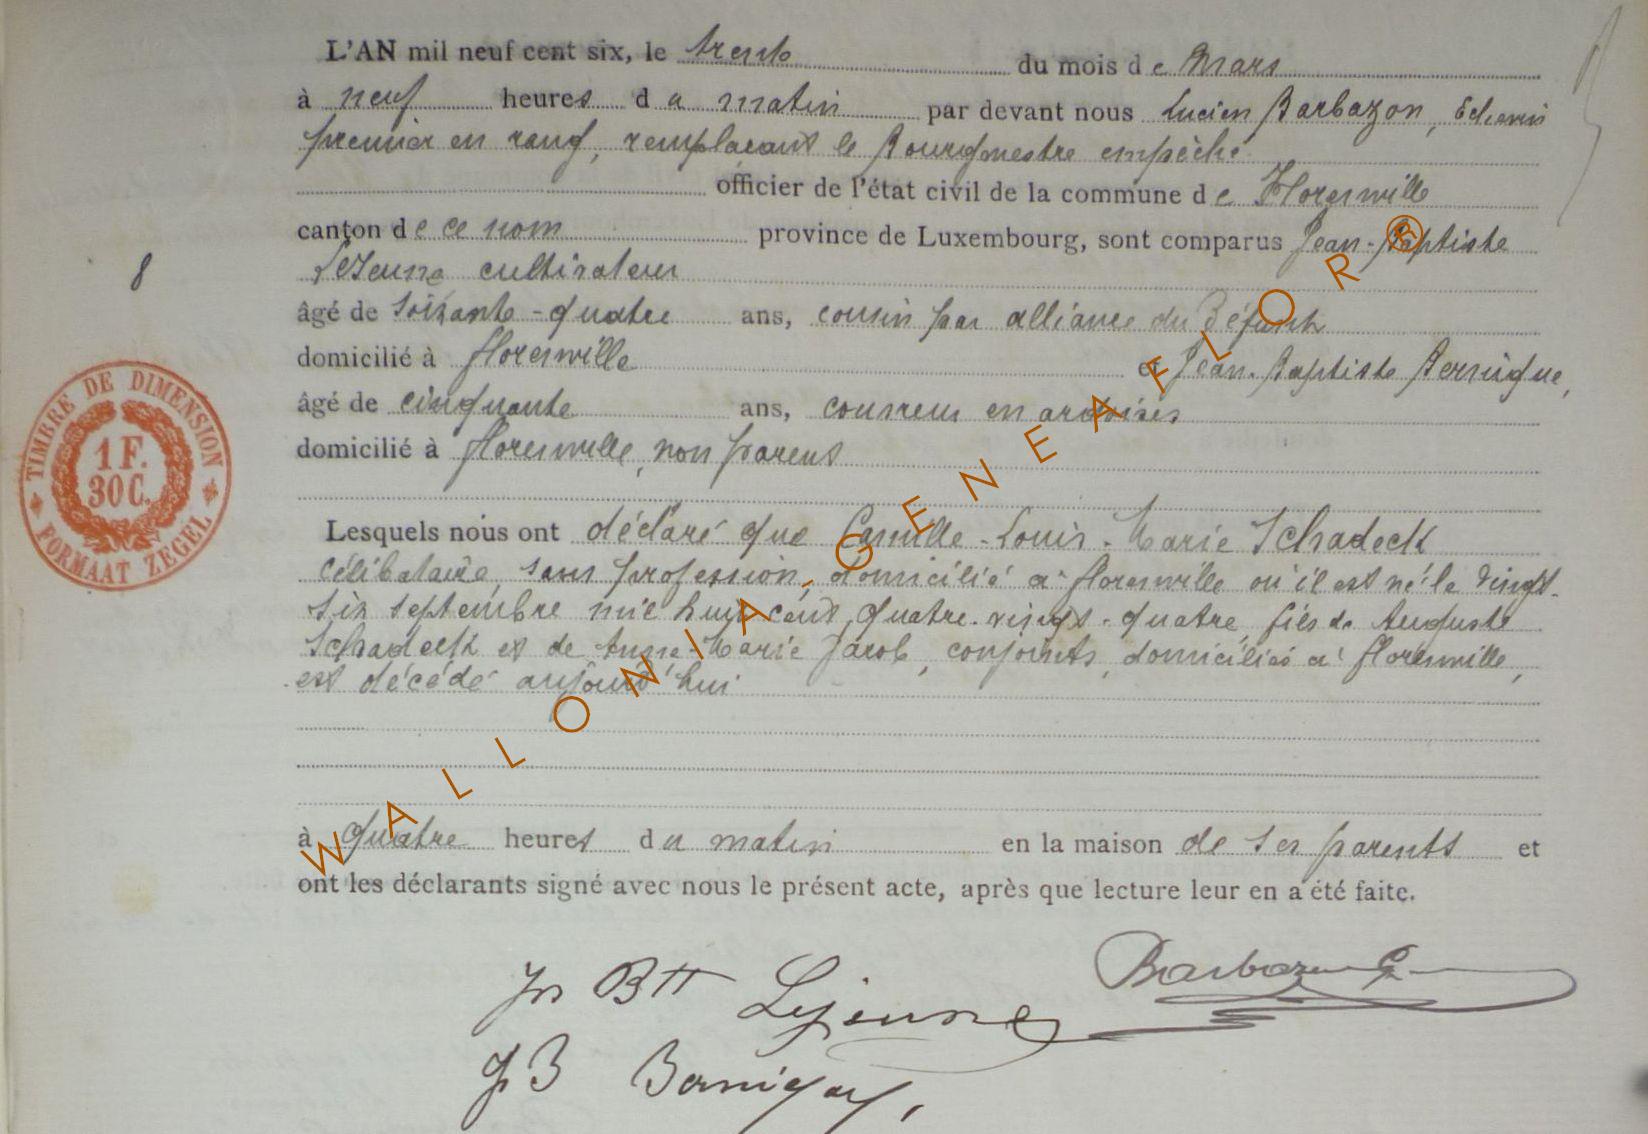 L'AN mil neuf cent six, le trente du mois de Mars
à neuf heures du matin par devant nous Lucien Barbazon, Echevin
premier en rang, remplaçant le Bourgmestre empêché
officier de l'état civil de la commune de Florenville
canton de ce nom province de Luxembourg, sont comparus Jean-Baptiste
Lejeune cultivateur
8
âgé de soixante-quatre ans, cousin par alliance du défunt
domicilié à florenville et Jean-Baptiste Bernique,
âgé de cinquante ans, couvreur en ardoises
domicilié à florenville, non parent
TIMBRE DE DIMENSION
1 F.
30 C.
FORMAAT ZEGEL
Lesquels nous ont déclaré que Camille-Louis-Marie Schadeck
célibataire, sans profession, domicilié à florenville où il est né le vingt-
six septembre mil huit cent quatre-vingt-quatre, fils de Auguste
Schadeck et de Anne-Marie Jacob, conjoints, domiciliés à florenville,
est décédé aujourd'hui
à quatre heures du matin en la maison de ses parents et
ont les déclarants signé avec nous le présent acte, après que lecture leur en a été faite.
WALLONIA-GENEAFLOR®
Barbazon
Jn Btt Lejeune
J B